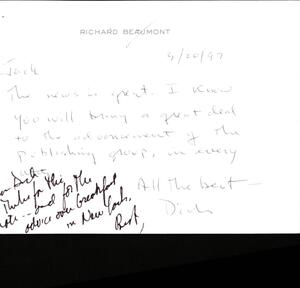 RICHARD BEAUMONT
9/20/97
Jack
The news is great. I know
you will bring a great deal
to the advancement of the
publishing group, in every
way.
All the best —
Dick
Dick
Thanks for this
note -- and for the
advice over breakfast
in New York.
Best,